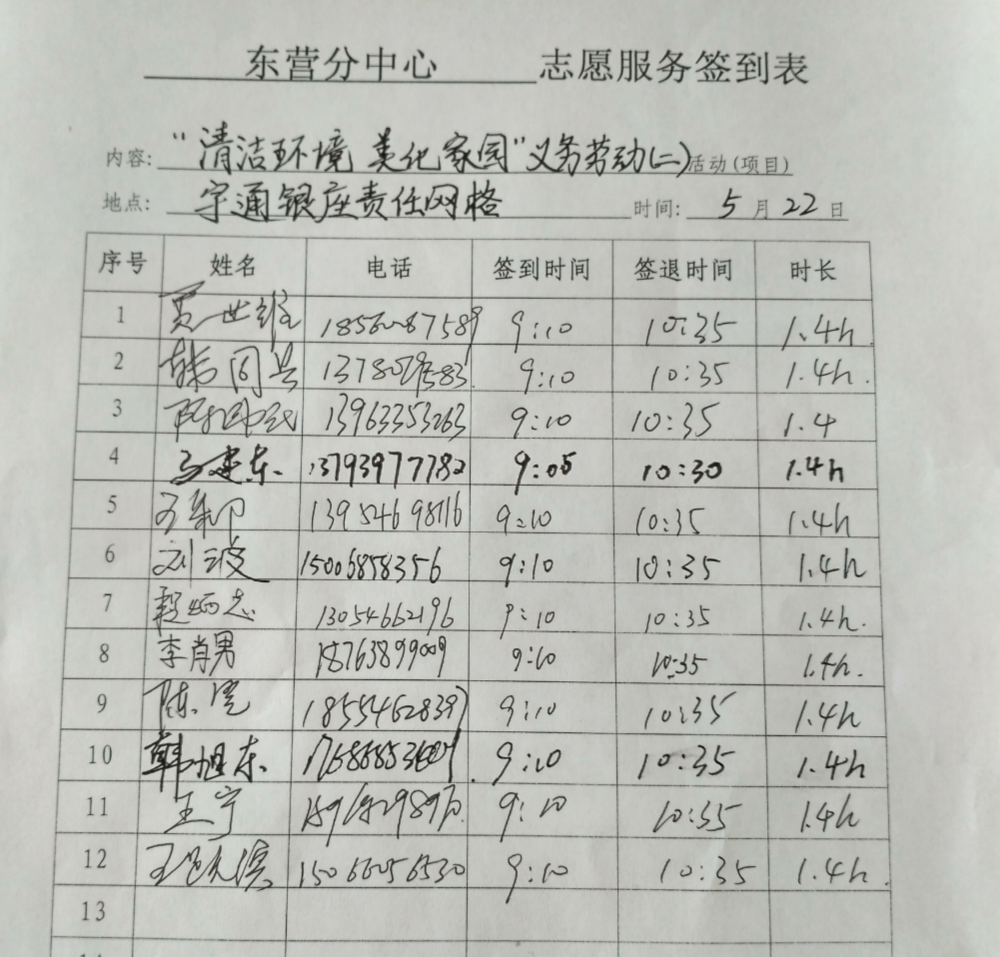 东营分中心 志愿服务签到表
内容: “清洁环境 美化家园”义务劳动(二) 活动(项目)
地点: 宇通银座责任网格 时间: 5月22日
序号 姓名 电话 签到时间 签退时间 时长
1 9:10 10:35 1.4h
2 韩同兴 9:10 10:35 1.4h.
3 13963353263 9:10 10:35 1.4
4 13793977782 9:05 10:30 1.4h
5 9:10 10:35 1.4h
6 刘波 15006858356 9:10 10:35 1.4h
7 程炳志 13054662196 9:10 10:35 1.4h.
8 李肖男 18763899009 9:10 10:35 1.4h.
9 陈亮 18554628397 9:10 10:35 1.4h
10 韩旭东 9:10 10:35 1.4h
11 王宁 9:10 10:35 1.4h
12 15066056530 9:10 10:35 1.4h.
13